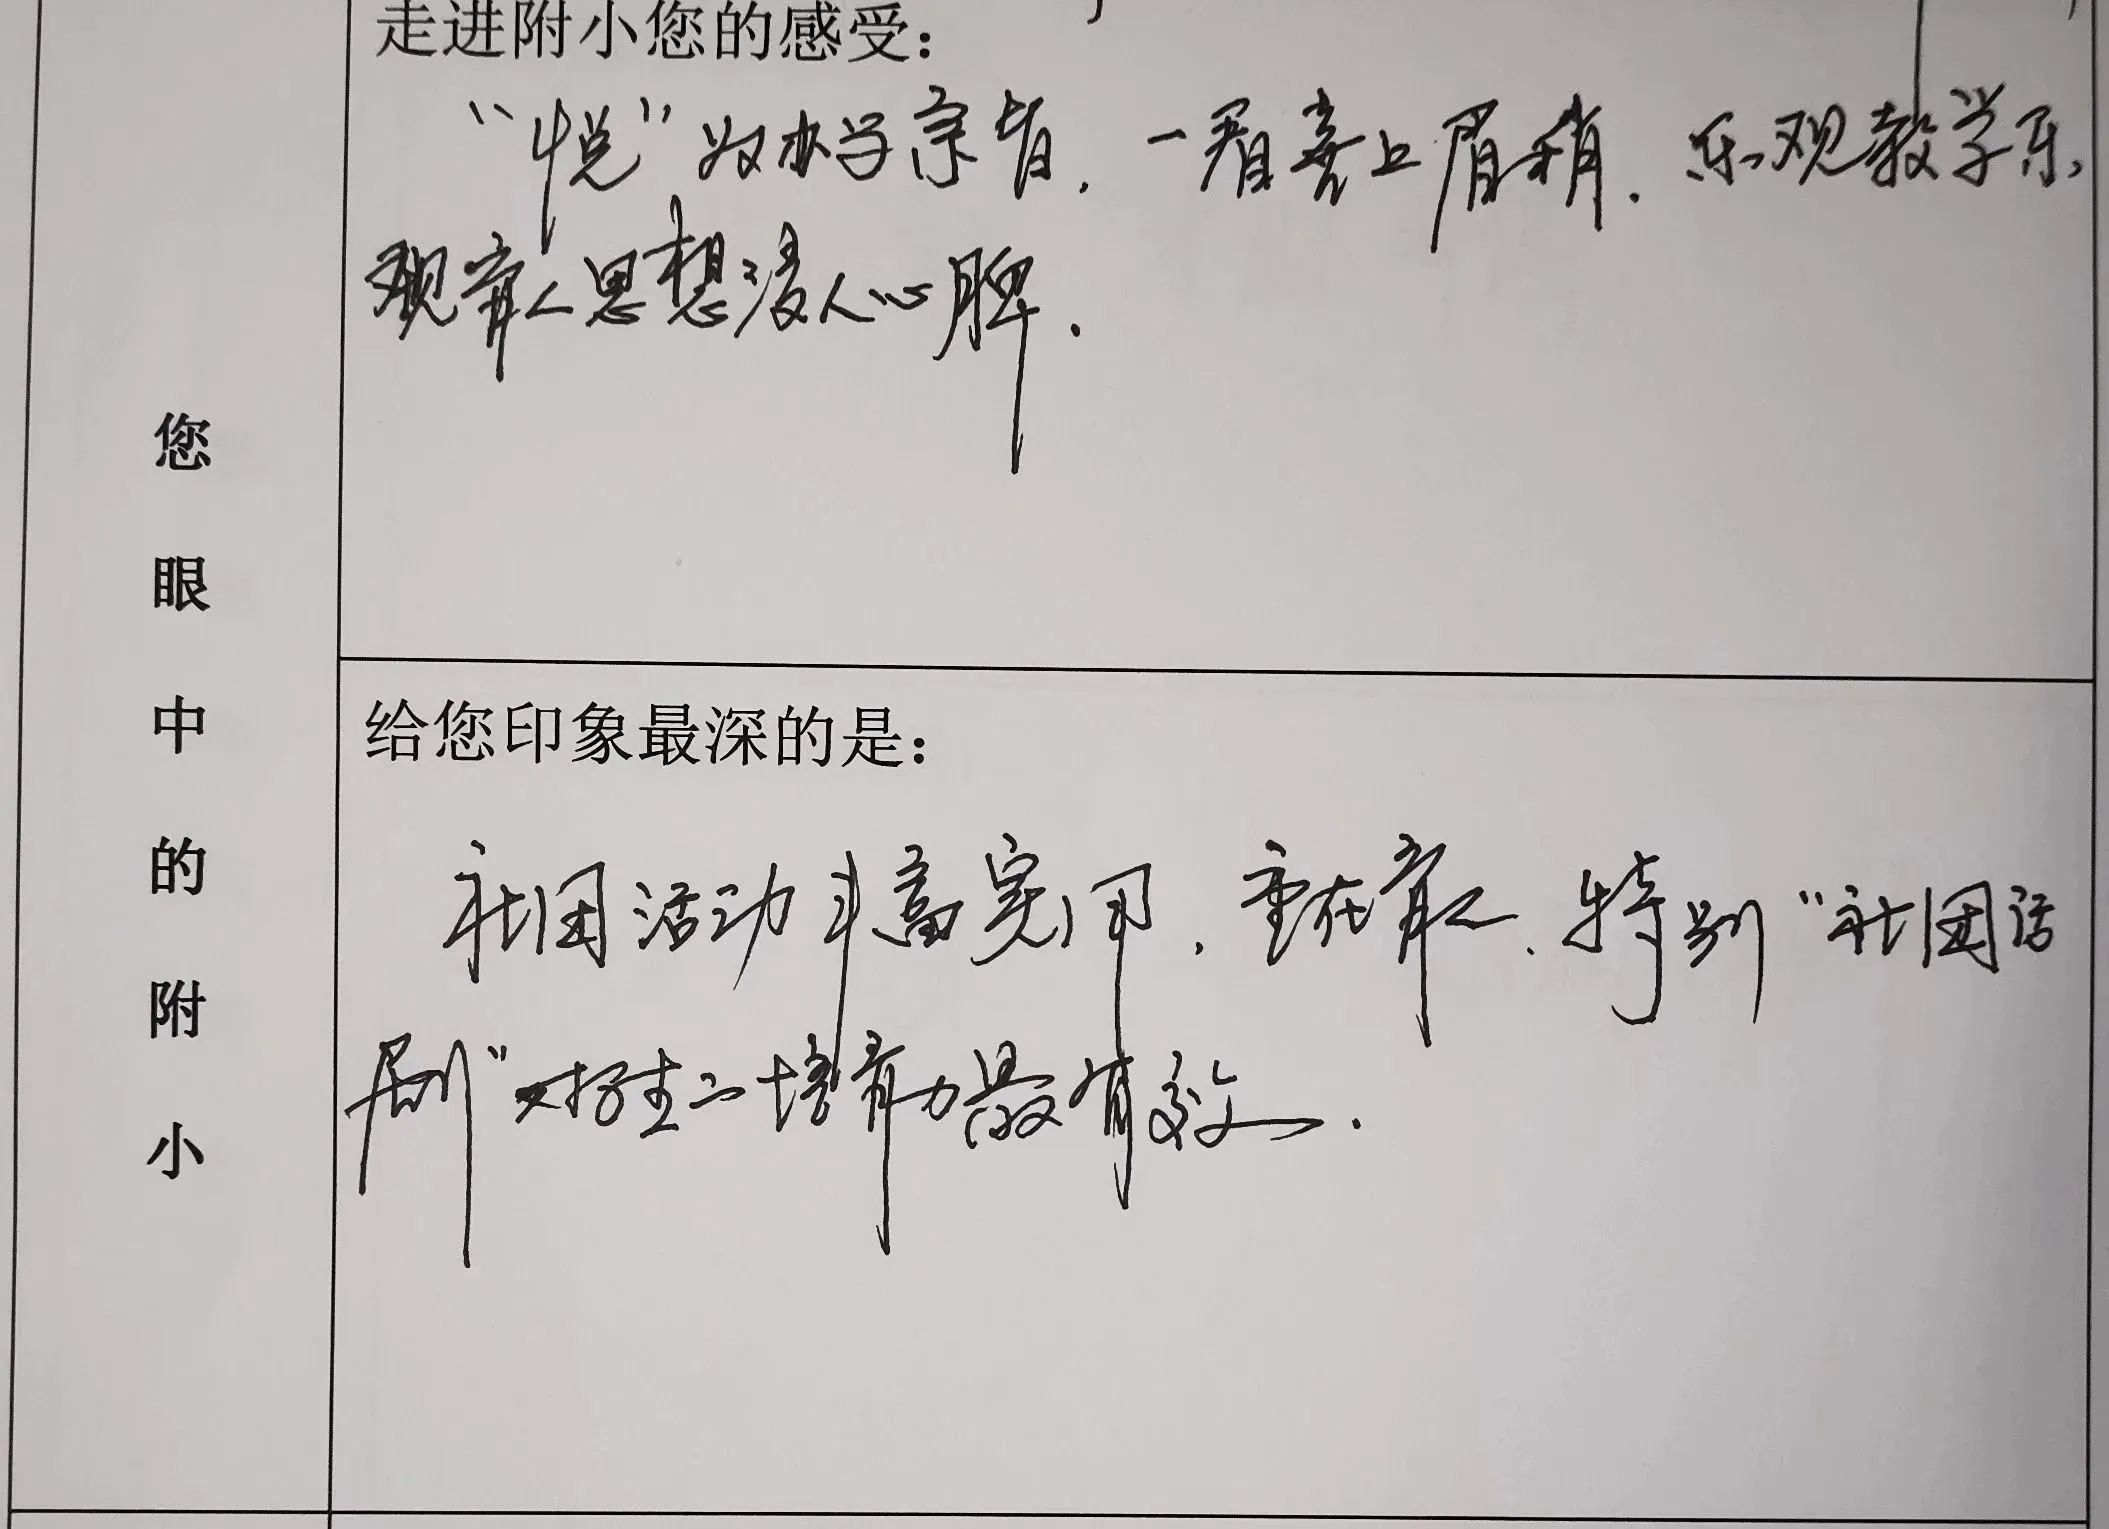 走进附小您的感受：
“悦”为办学宗旨，一看喜上眉稍．乐观教学乐
观育人思想浸人心脾．
您眼中的附小
给您印象最深的是：
社团活动丰富实用，重在育人．特别“社团话
剧”对学生的培育力最有效．